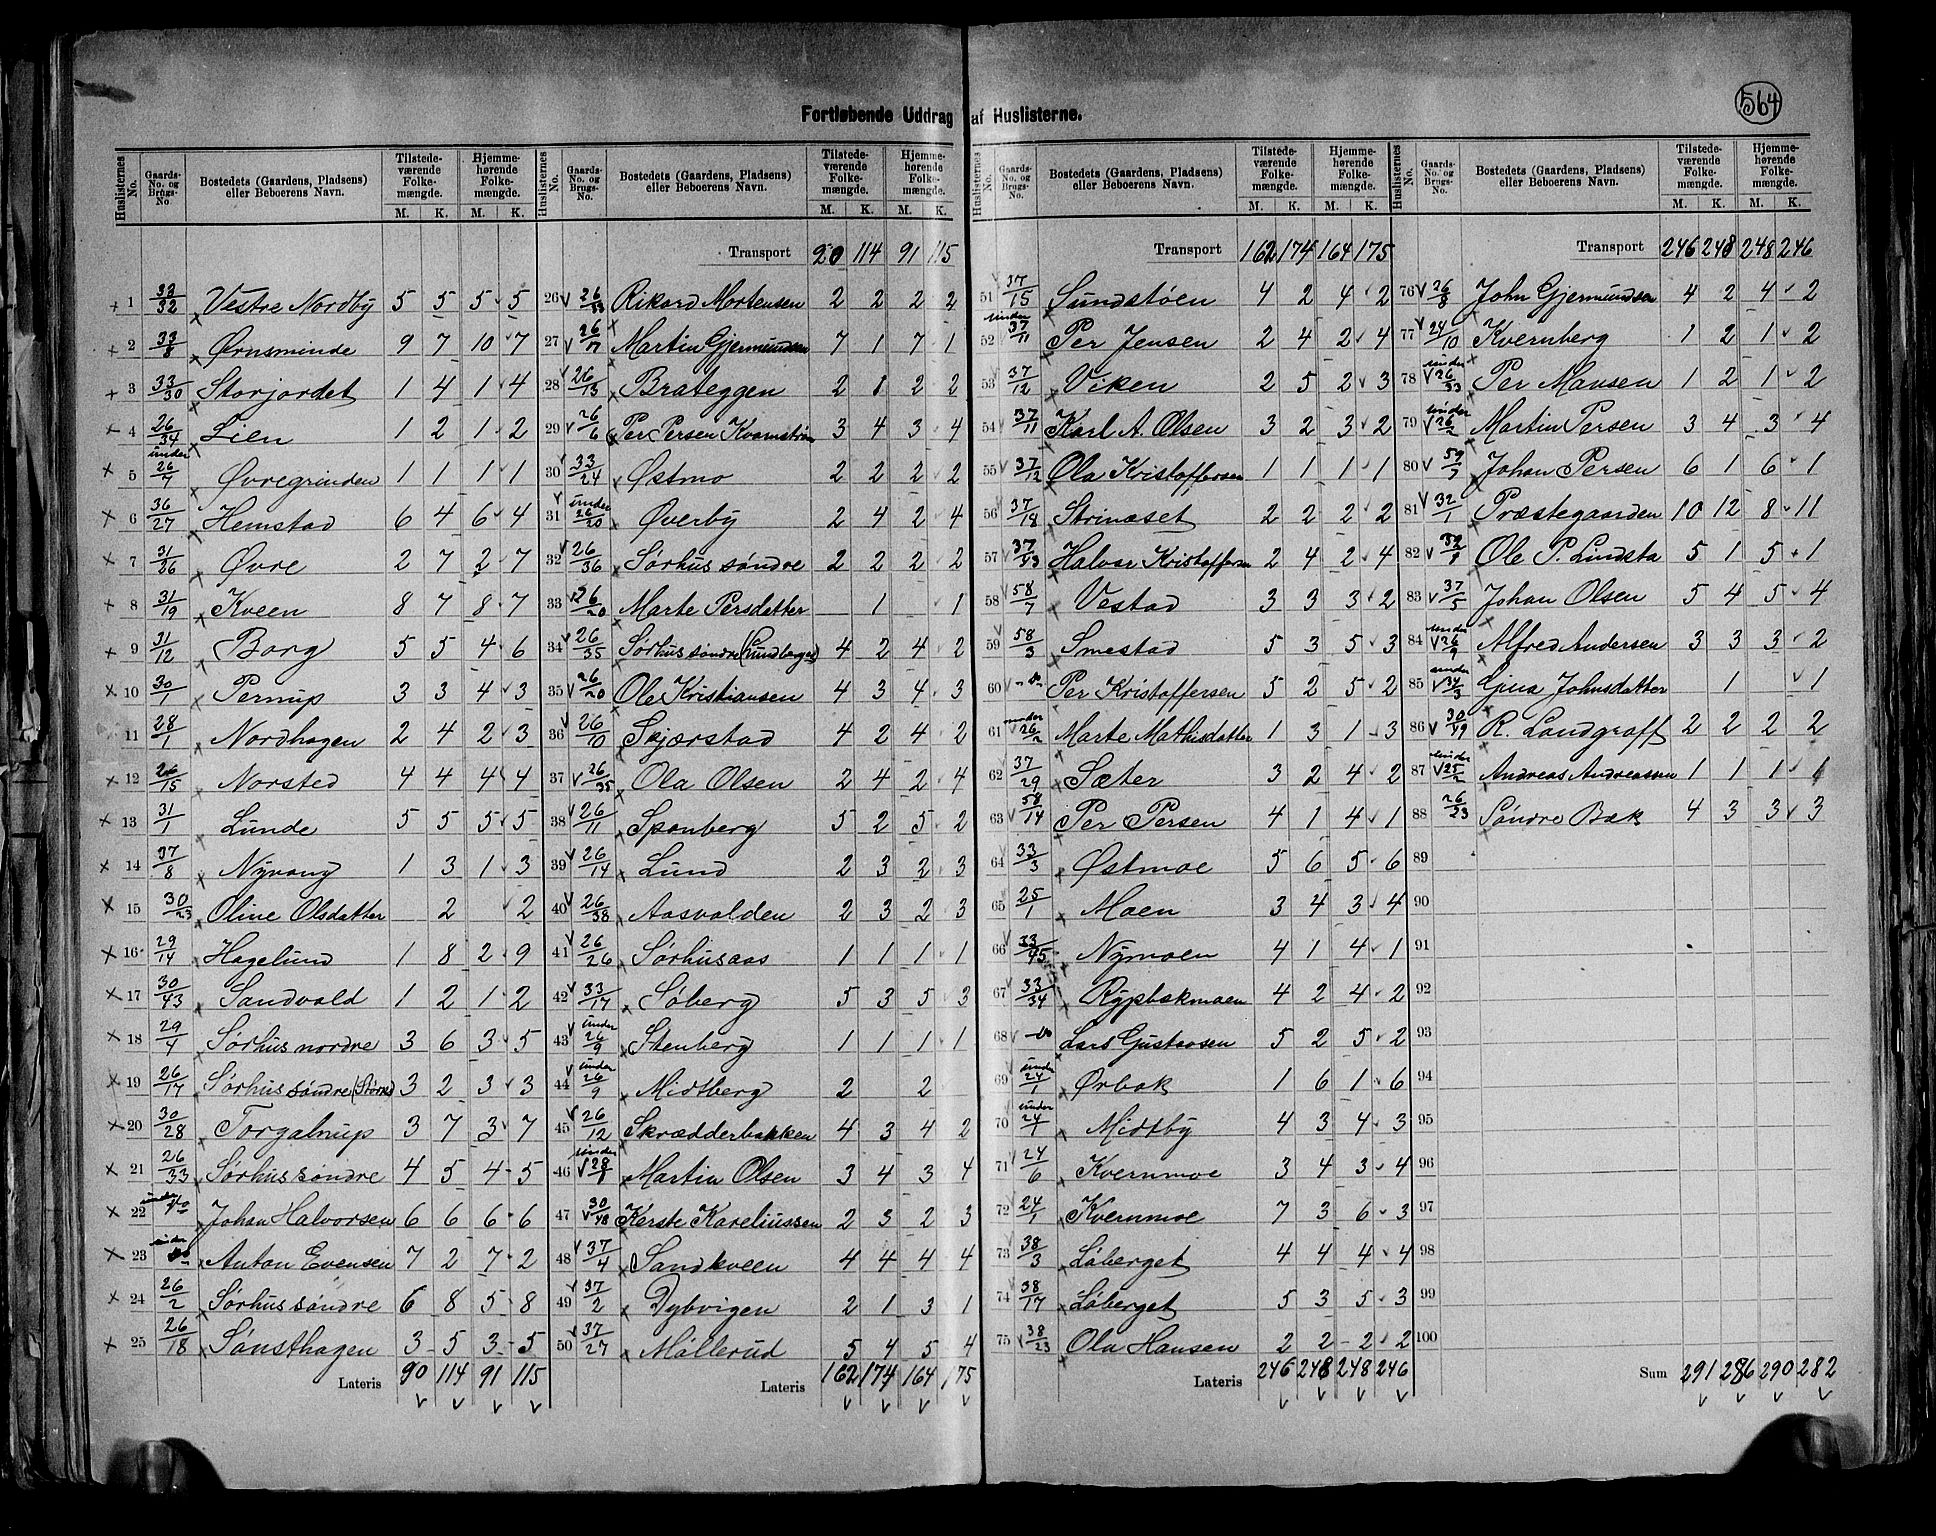 564
Fortløbende Uddrag af Huslisterne.
Huslisternes No. Gaards-No. og Brugs-No. Bostedets (Gaardens, Pladsens) eller Beboerens Navn. Tilstedeværende Folkemængde. M. K. Hjemmehørende Folkemængde. M. K.
1 33/32 Vestre Nordby 5 5 5 5
2 33/8 Ørnsminde 9 7 10 7
3 33/30 Storjordet 1 4 1 4
4 26/34 Lien 1 2 1 2
5 under 26/7 Øvregrinden 1 1 1 1
6 36/27 Hemstad 6 4 6 4
7 31/26 Øvre 2 7 2 7
8 31/19 Kveen 8 7 8 7
9 31/12 Borg 5 5 4 6
10 30/1 Pernup 3 3 4 3
11 28/1 Nordhagen 2 4 2 3
12 26/15 Norsted 4 4 4 4
13 31/1 Lunde 5 5 5 5
14 37/8 Nyvang 1 3 1 3
15 30/23 Oline Olsdatter 2 2
16 29/14 Hagelund 1 8 2 9
17 30/43 Sandvold 1 2 1 2
18 29/4 Sørhus nordre 3 6 3 5
19 26/17 Sørhus søndre 3 2 3 3
20 30/28 Torgalnup 3 7 3 7
21 26/33 Sørhus søndre 4 5 4 5
22 under do Johan Halvorsen 6 6 6 6
23 under do Anton Evensen 7 2 7 2
24 26/2 Sørhus søndre 6 8 5 8
25 26/18 Sønsthagen 3 5 3 5
Lateris 90 114 91 115
Huslisternes No. Gaards-No. og Brugs-No. Bostedets (Gaardens, Pladsens) eller Beboerens Navn. Tilstedeværende Folkemængde. M. K. Hjemmehørende Folkemængde. M. K.
Transport 90 114 91 115
26 Rikard Mortensen 2 2 2 2
27 26/17 Martin Gjermundsen 7 1 7 1
28 26/13 Brateggen 2 1 2 2
29 26/6 Per Persen Kvamstrøm 3 4 3 4
30 33/24 Østmo 2 2 2 2
31 under 26/20 Øverby 2 4 2 4
32 26/36 Sørhus søndre 2 2 2 2
33 26/20 Marte Persdatter 1 1
34 26/35 Sørhus søndre (Lundberget) 4 2 4 2
35 26/20 Ole Kristiansen 4 3 4 3
36 26/10 Skjærstad 4 2 4 2
37 26/35 Ola Olsen 2 4 2 4
38 26/11 Sponberg 5 2 5 2
39 26/14 Lund 2 3 2 3
40 26/38 Aasvolden 2 3 2 3
41 26/26 Sørhusaas 1 1 1 1
42 33/17 Søberg 5 3 5 3
43 under 26/9 Stenberg 1 1 1 1
44 under 26/9 Midtberg 2 2
45 26/12 Skrædderbakken 4 3 4 2
46 under 28/1 Martin Olsen 3 4 3 4
47 30/48 Kerste Kareliussen 2 3 2 3
48 37/4 Sandkveen 4 4 4 4
49 37/2 Dybvigen 2 1 3 1
50 37/27 Møllerud 5 4 5 4
Lateris 162 174 164 175
Huslisternes No. Gaards-No. og Brugs-No. Bostedets (Gaardens, Pladsens) eller Beboerens Navn. Tilstedeværende Folkemængde. M. K. Hjemmehørende Folkemængde. M. K.
Transport 162 174 164 175
51 37/15 Sundstøen 4 2 4 2
52 under 37/11 Per Jensen 2 4 2 4
53 37/12 Viken 2 5 2 3
54 37/11 Karl A. Olsen 3 2 3 2
55 37/12 Ola Kristoffersen 1 1 1 1
56 37/18 Strinæset 2 2 2 2
57 37/43 Halvor Kristoffersen 2 4 2 4
58 58/7 Vestad 3 3 3 2
59 58/3 Smestad 5 3 5 3
60 do Per Kristoffersen 5 2 5 2
61 under 26/2 Marte Mathisdatter 1 3 1 3
62 37/29 Sæter 3 2 4 2
63 58/14 Per Persen 4 1 4 1
64 33/3 Østmoe 5 6 5 6
65 25/1 Moen 3 4 3 4
66 33/45 Nymoen 4 1 4 1
67 33/34 Rypbækmoen 4 2 4 2
68 do Lars Gustavsen 5 2 5 2
69 under 24/1 Ørbak 1 6 1 6
70 under 24/1 Midtby 4 3 4 3
71 24/6 Kvernmoe 3 4 3 4
72 24/1 Kvernmoe 7 3 6 3
73 38/3 Løberget 4 4 4 4
74 38/17 Løberget 5 3 5 3
75 38/23 Ola Hansen 2 2 2 2
Lateris 246 248 248 246
Huslisternes No. Gaards-No. og Brugs-No. Bostedets (Gaardens, Pladsens) eller Beboerens Navn. Tilstedeværende Folkemængde. M. K. Hjemmehørende Folkemængde. M. K.
Transport 246 248 248 246
76 26/8 John Gjermundsen 4 2 4 2
77 24/10 Kvernberg 1 2 1 2
78 under 26/33 Per Mansen 1 2 1 2
79 under 26/2 Martin Persen 3 4 3 4
80 59/3 Johan Persen 6 1 6 1
81 32/1 Præstegaarden 10 12 8 11
82 Ole P. Lindsta 5 1 5 1
83 37/5 Johan Olsen 5 4 5 4
84 under 26/9 Alfred Andersen 3 3 3 2
85 under 34/3 Gina Johnsdatter 1 1
86 30/49 R. Landgraff 2 2 2 2
87 under 25/2 Andreas Andreassen 1 1 1 1
88 26/23 Søndre Bæk 4 3 3 3
89
90
91
92
93
94
95
96
97
98
99
100
Sum 291 286 290 282